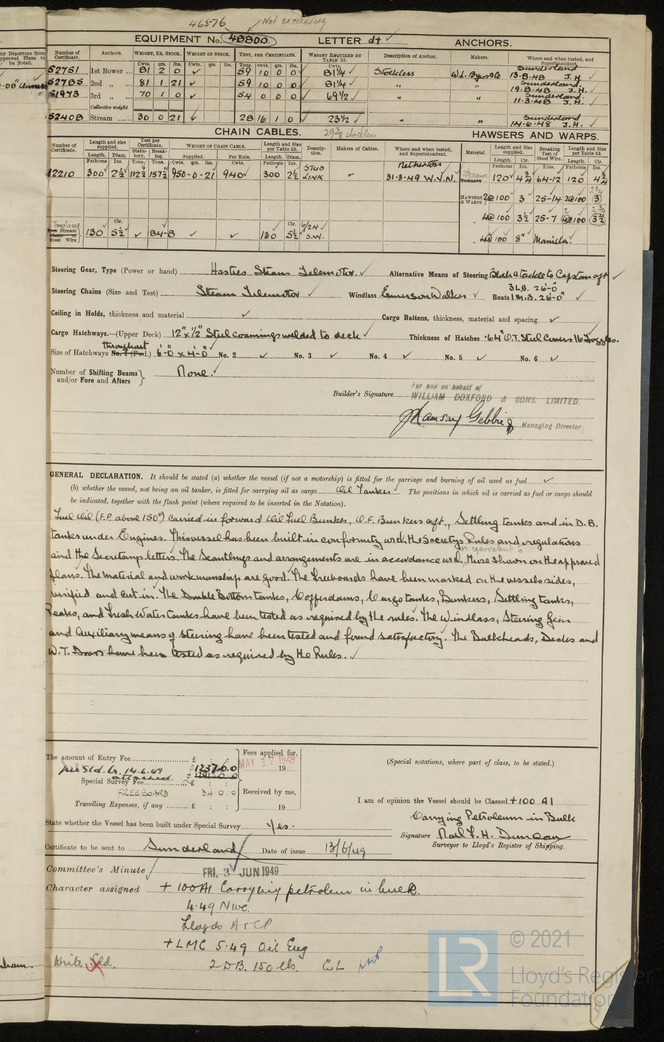 46576 Not exceeding
EQUIPMENT No. 48800 LETTER d† ANCHORS.
Number of Certificate. Anchors. WEIGHT, EX. STOCK. WEIGHT OF STOCK. TEST, PER CERTIFICATE. WEIGHT REQUIRED BY TABLE 53. Description of Anchor. Makers. Where and when tested, and Superintendent.
52751 1st Bower 81 2 0 59 10 0 0 81¼ Stockless W.L. Byers & Co Sunderland 13.8.48 J.H.
52785 2nd „ 81 1 21 59 10 0 0 81¼ „ „ Sunderland 19.8.48 J.H.
51973 3rd „ 70 1 0 54 0 0 0 69½ „ „ Sunderland 11.3.48 J.H.
Collective weight
52408 Stream 30 0 21 28 16 1 0 23½ „ Sunderland 14.6.48 J.H.
CHAIN CABLES. HAWSERS AND WARPS.
Number of Certificate. Length and Size supplied. Test per Certificate. WEIGHT OF CHAIN CABLE. Length and Size per Table 53. Description. Makers of Cables. Where and when tested, and Superintendent. Material. Length and Size supplied. Breaking Test of Steel Wire. Length and Size per Table 53.
Length. Diam. Statutory. Breaking. Supplied. Per Rule. Length. Diam.
12210 300 2½ 112½ 157½ 950-0-21 940 300 2½ STUD LINK Netherton 31.3.49 W.V.N. 120 4¾ 64-12 120 4¾
HAWSERS & WARPS 2@100 3 25-14 2@100 (3)
4@100 3½ 25-7
Stream Steel Wire 130 5½ 84-8 130 5½ 6/24 S.W. 4@100 8" Manilla
Steering Gear, Type (Power or hand) Hasties Steam Telemotor. Alternative Means of Steering Block & tackle to Capstan aft
Steering Chains (Size and Test) Steam Telemotor Windlass Emerson Walker Boats 3 L.B. 26'-0" 1 M.B. 26'-0"
Ceiling in Holds, thickness and material Cargo Battens, thickness, material and spacing
Cargo Hatchways.—(Upper Deck) 12" x ½" Steel coamings welded to deck Thickness of Hatches .64" O.T. Steel Covers 16 Toggles.
Size of Hatchways throughout 6'-0" x 4'-0" No. 2 No. 3 No. 4 No. 5 No. 6
Number of Shifting Beams and/or Fore and Afters } None.
Builder's Signature For and on behalf of WILLIAM DOXFORD & SONS. LIMITED.
J Ramsay Gebbie Managing Director
GENERAL DECLARATION. It should be stated (a) whether the vessel (if not a motorship) is fitted for the carriage and burning of oil used as fuel
(b) whether the vessel, not being an oil tanker, is fitted for carrying oil as cargo Oil Tanker. The positions in which oil is carried as fuel or cargo should
be indicated, together with the flash point (where required to be inserted in the Notation).
Fuel Oil (F.P. above 150°) carried in forward Oil Fuel Bunker, O.F. Bunkers aft., Settling tanks and in D.B.
tanks under Engines. This vessel has been built in conformity with the Society's Rules and regulations
and the Secretarys letters. The Scantlings and arrangements are in accordance with or equivalent to those shown on the approved
plans. The material and workmanship are good. The Freeboards have been marked on the vessels sides,
verified and cut in. The Double Bottom tanks, Cofferdams, Cargo tanks, Bunkers, Settling tanks,
Peaks, and Fresh Water tanks have been tested as required by the rules. The Windlass, Steering Gear
and Auxiliary means of steering have been tested and found satisfactory. The Bulkheads, Decks and
W.T. Doors have been tested as required by the Rules.
The amount of Entry Fee £ Fees applied for,
per Sld. Lr. 14.6.49 MAY 12 1949
Special Survey Fee
FREEBOARD 34 0 0 Received by me,
Travelling Expenses, if any £ : : 19
(Special notations, where part of class, to be stated.)
I am of opinion the Vessel should be Classed +100 A1
Carrying Petroleum in Bulk
State whether the Vessel has been built under Special Survey Yes.
Signature Noel F. H. Duncan
Surveyor to Lloyd's Register of Shipping.
Certificate to be sent to Sunderland Date of issue 13/6/49
Committee's Minute FRI. 3 JUN 1949
Character assigned +100A1 Carrying petroleum in bulk.
4.49 Nwc.
Lloyds A & CP
+LMC 5.49 Oil Eng
Write Sld. 2 D.B. 150 lb. CL
LR © 2021
Lloyd's Register
Foundation